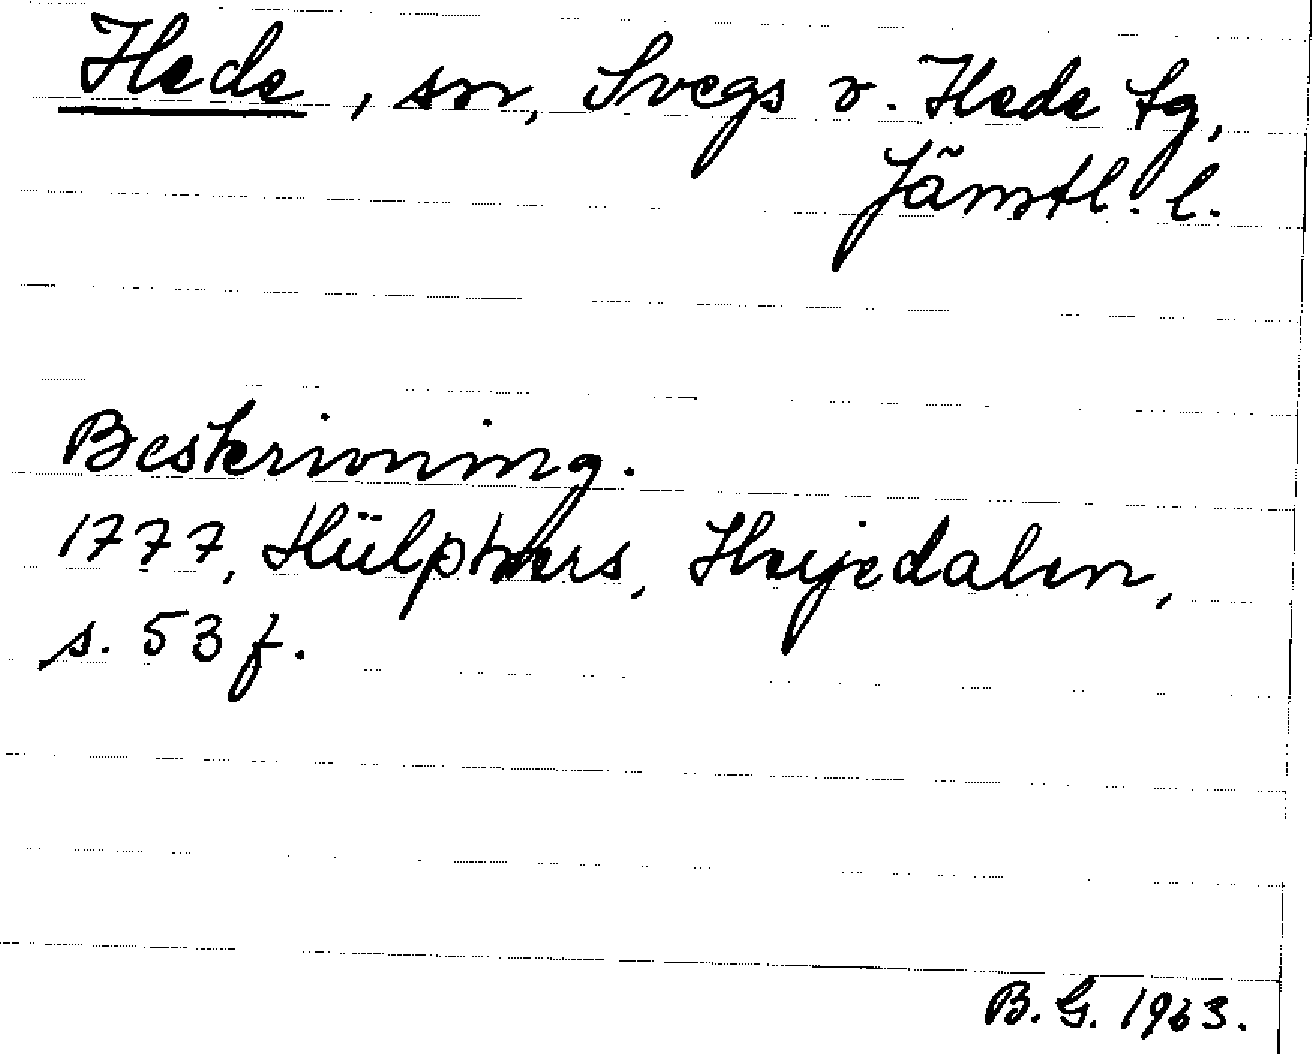 Hede, sn, Svegs o. Hede tg,
Jämtl. l.
Beskrivning.
1777, Hülphers, Herjedalen,
s. 53 f.
B. G. 1963.